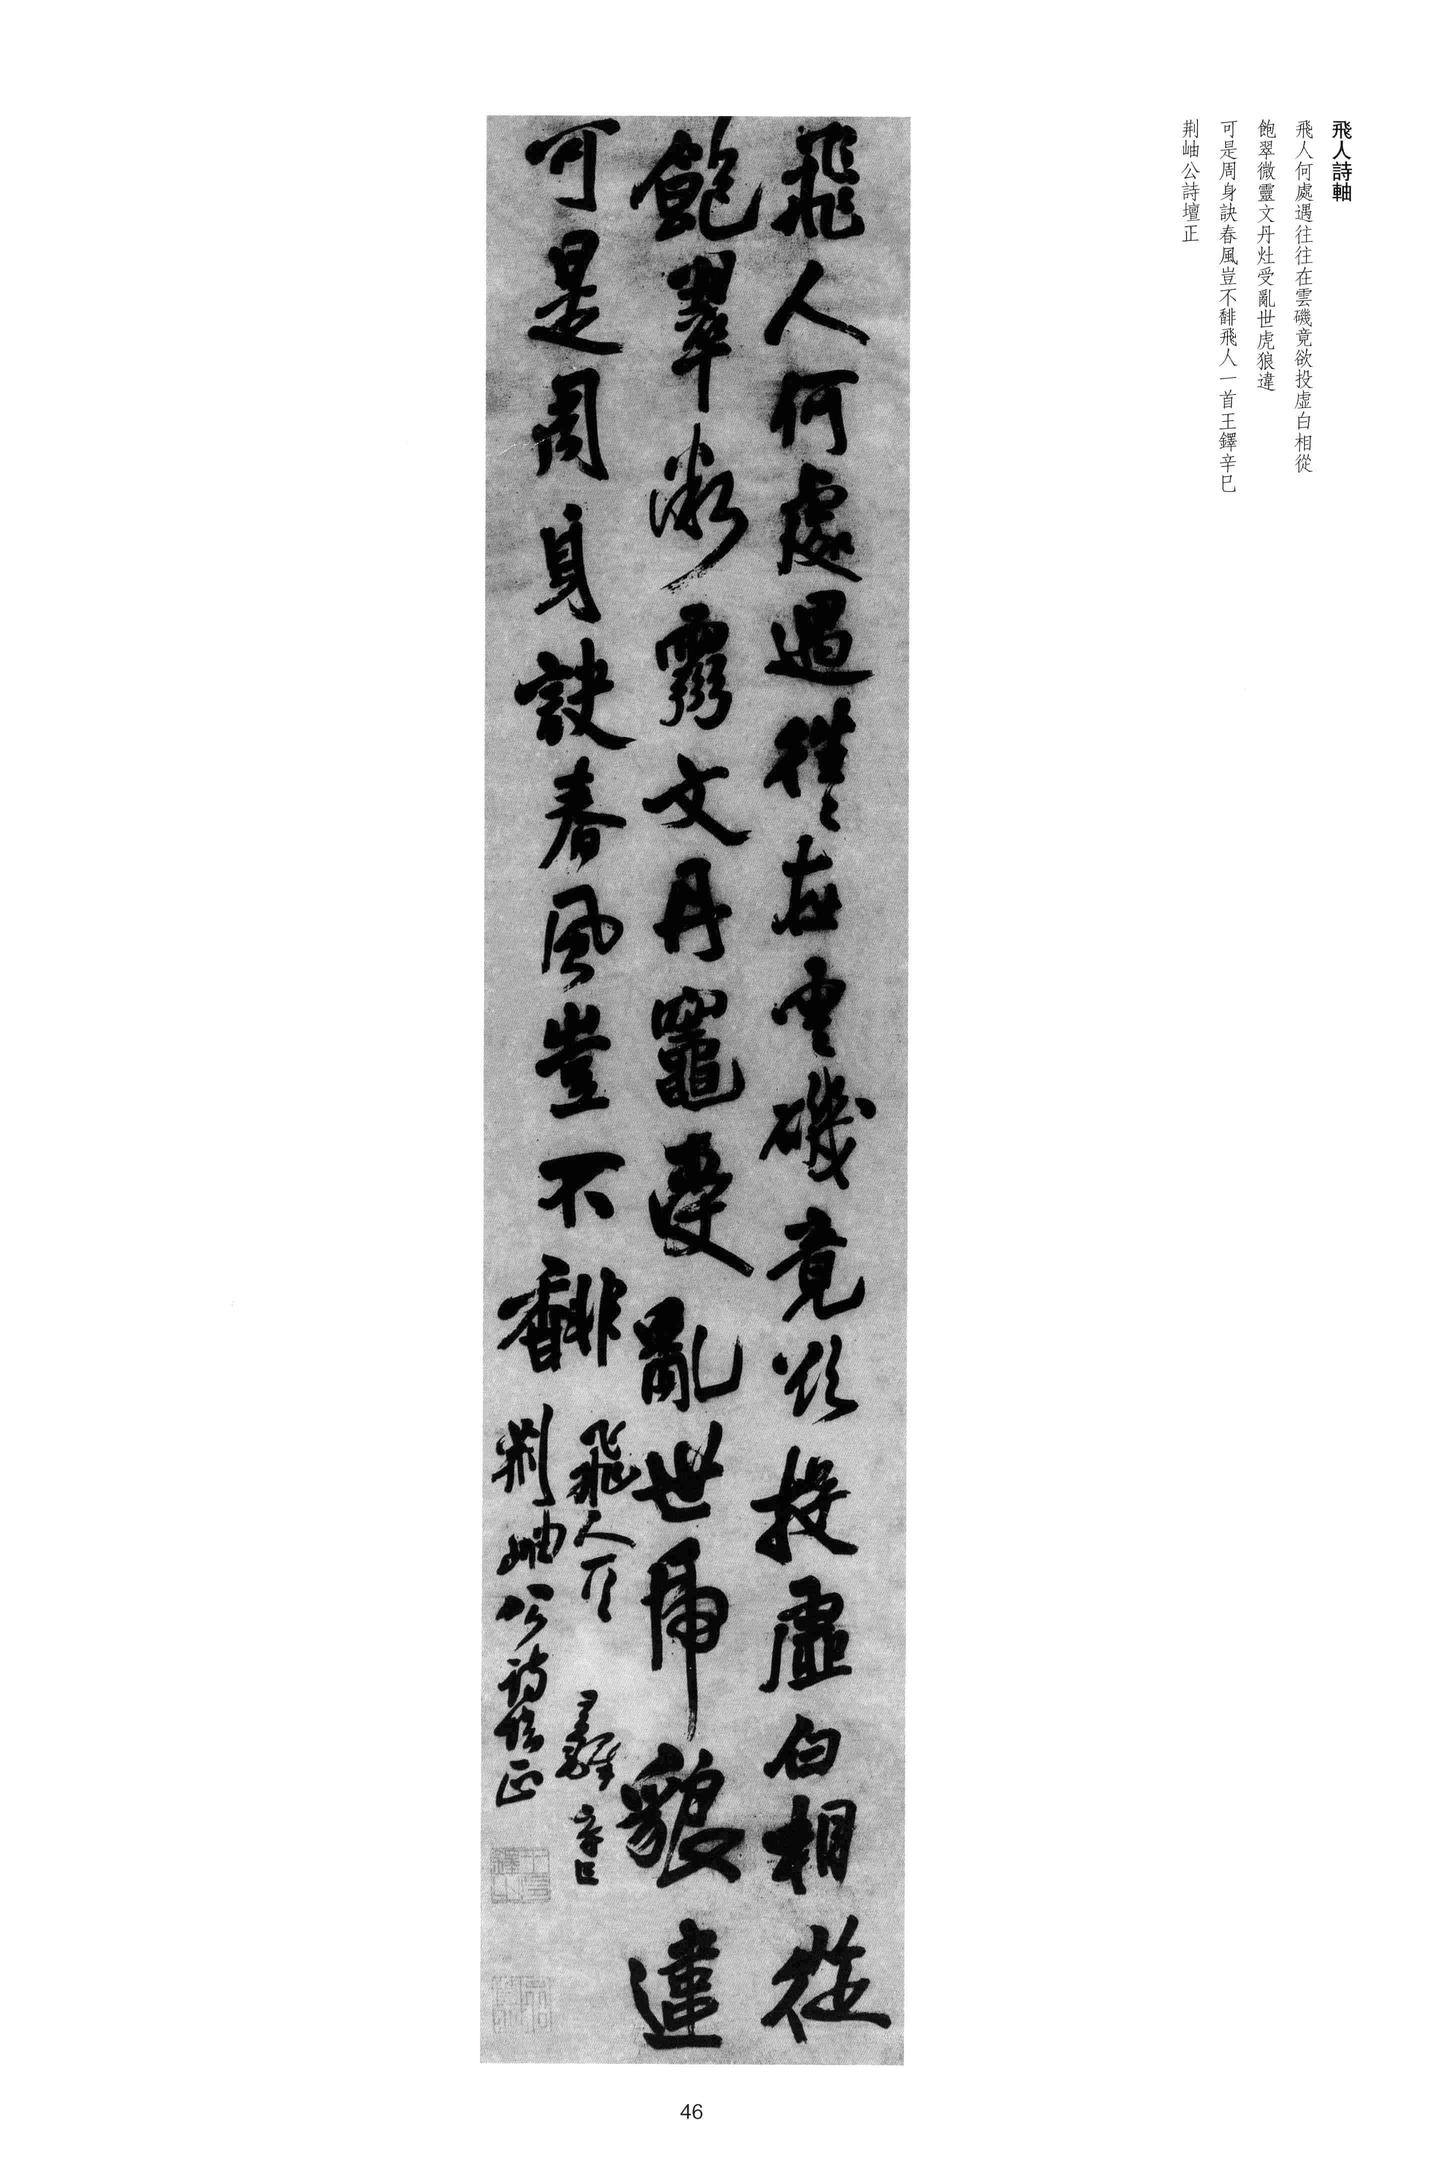 飛人詩軸
飛人何處遇往往在雲磯竟欲投虛白相從
飽翠微靈文丹灶受亂世虎狼違
可是周身訣春風豈不馡飛人一首王鐸辛巳
荆岫公詩壇正
飛人何處遇往〻在雲磯竟欲投虛白相從
飽翠微靈文丹竈受亂世虎貌違
可是周身訣春風豈不馡
飛人一首 王鐸 辛巳
荆岫公詩壇正
46